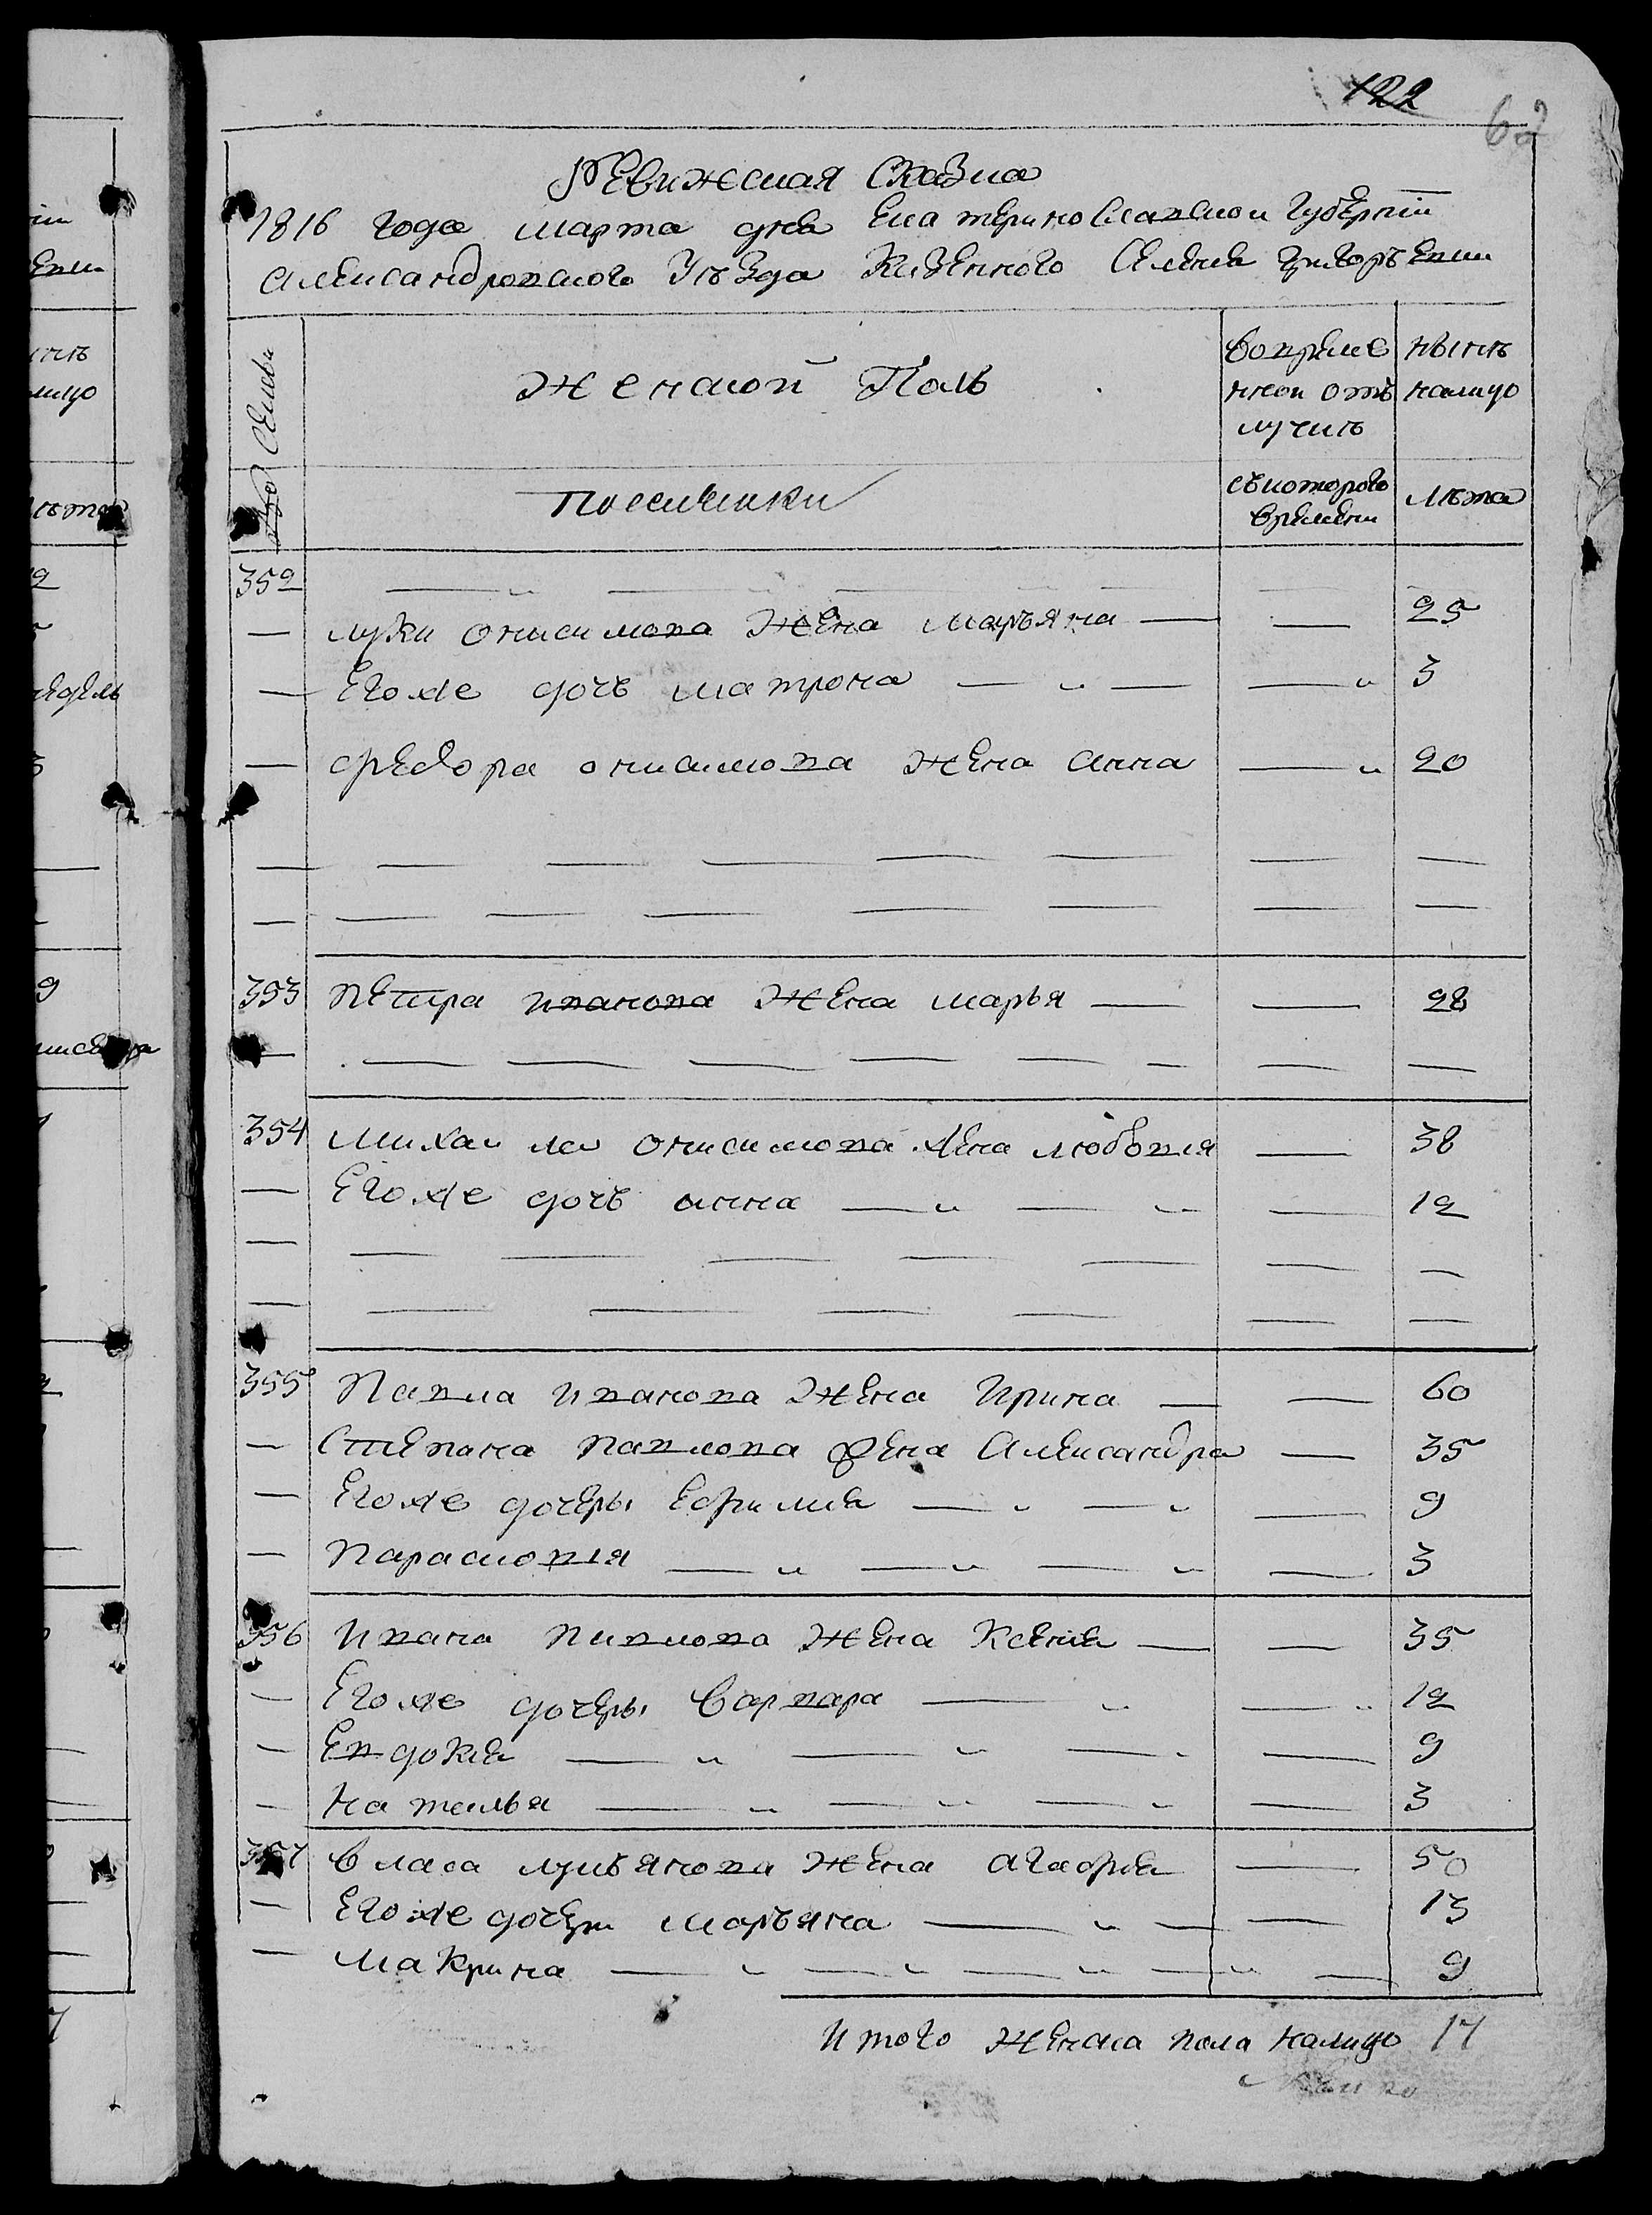 122
62
Ревижская Сказка
1816 года марта дня Екатеринославской Губернiи
Александровского Уѣзда Казенного Селенiя Григорьевки
№ Семьи
Женской Полъ
Во временной отлучкѣ
нынѣ налицо
Поселянки
съ которого времени
лѣта
352
— Луки Онисимова Жена Марьяна — — 25
— Его же дочь Матрона — — 3
— Федора Онисимова жена Анна — 20
353 Петра Иванова Жена Марья — — 28
354 Михаила Онисимова жена Любовия — 38
— Его же дочь Анна — — — 12
355 Павла Иванова Жена Ирина — — 60
— Степана Павлова жена Александра — 35
— Его же дочеры Ефимия — — — 9
— Парасковiя — — — — 3
356 Ивана Павлова Жена Ксения — — 35
— Его же дочеры Варвара — — 12
— Евдокия — — — — 9
— Наталья — — — — 3
357 Власа Лукьянова Жена Агафия — 50
— Его же дочери Марьяна — — — 13
— Макрина — — — — — 9
Итого Женска пола налицо 17